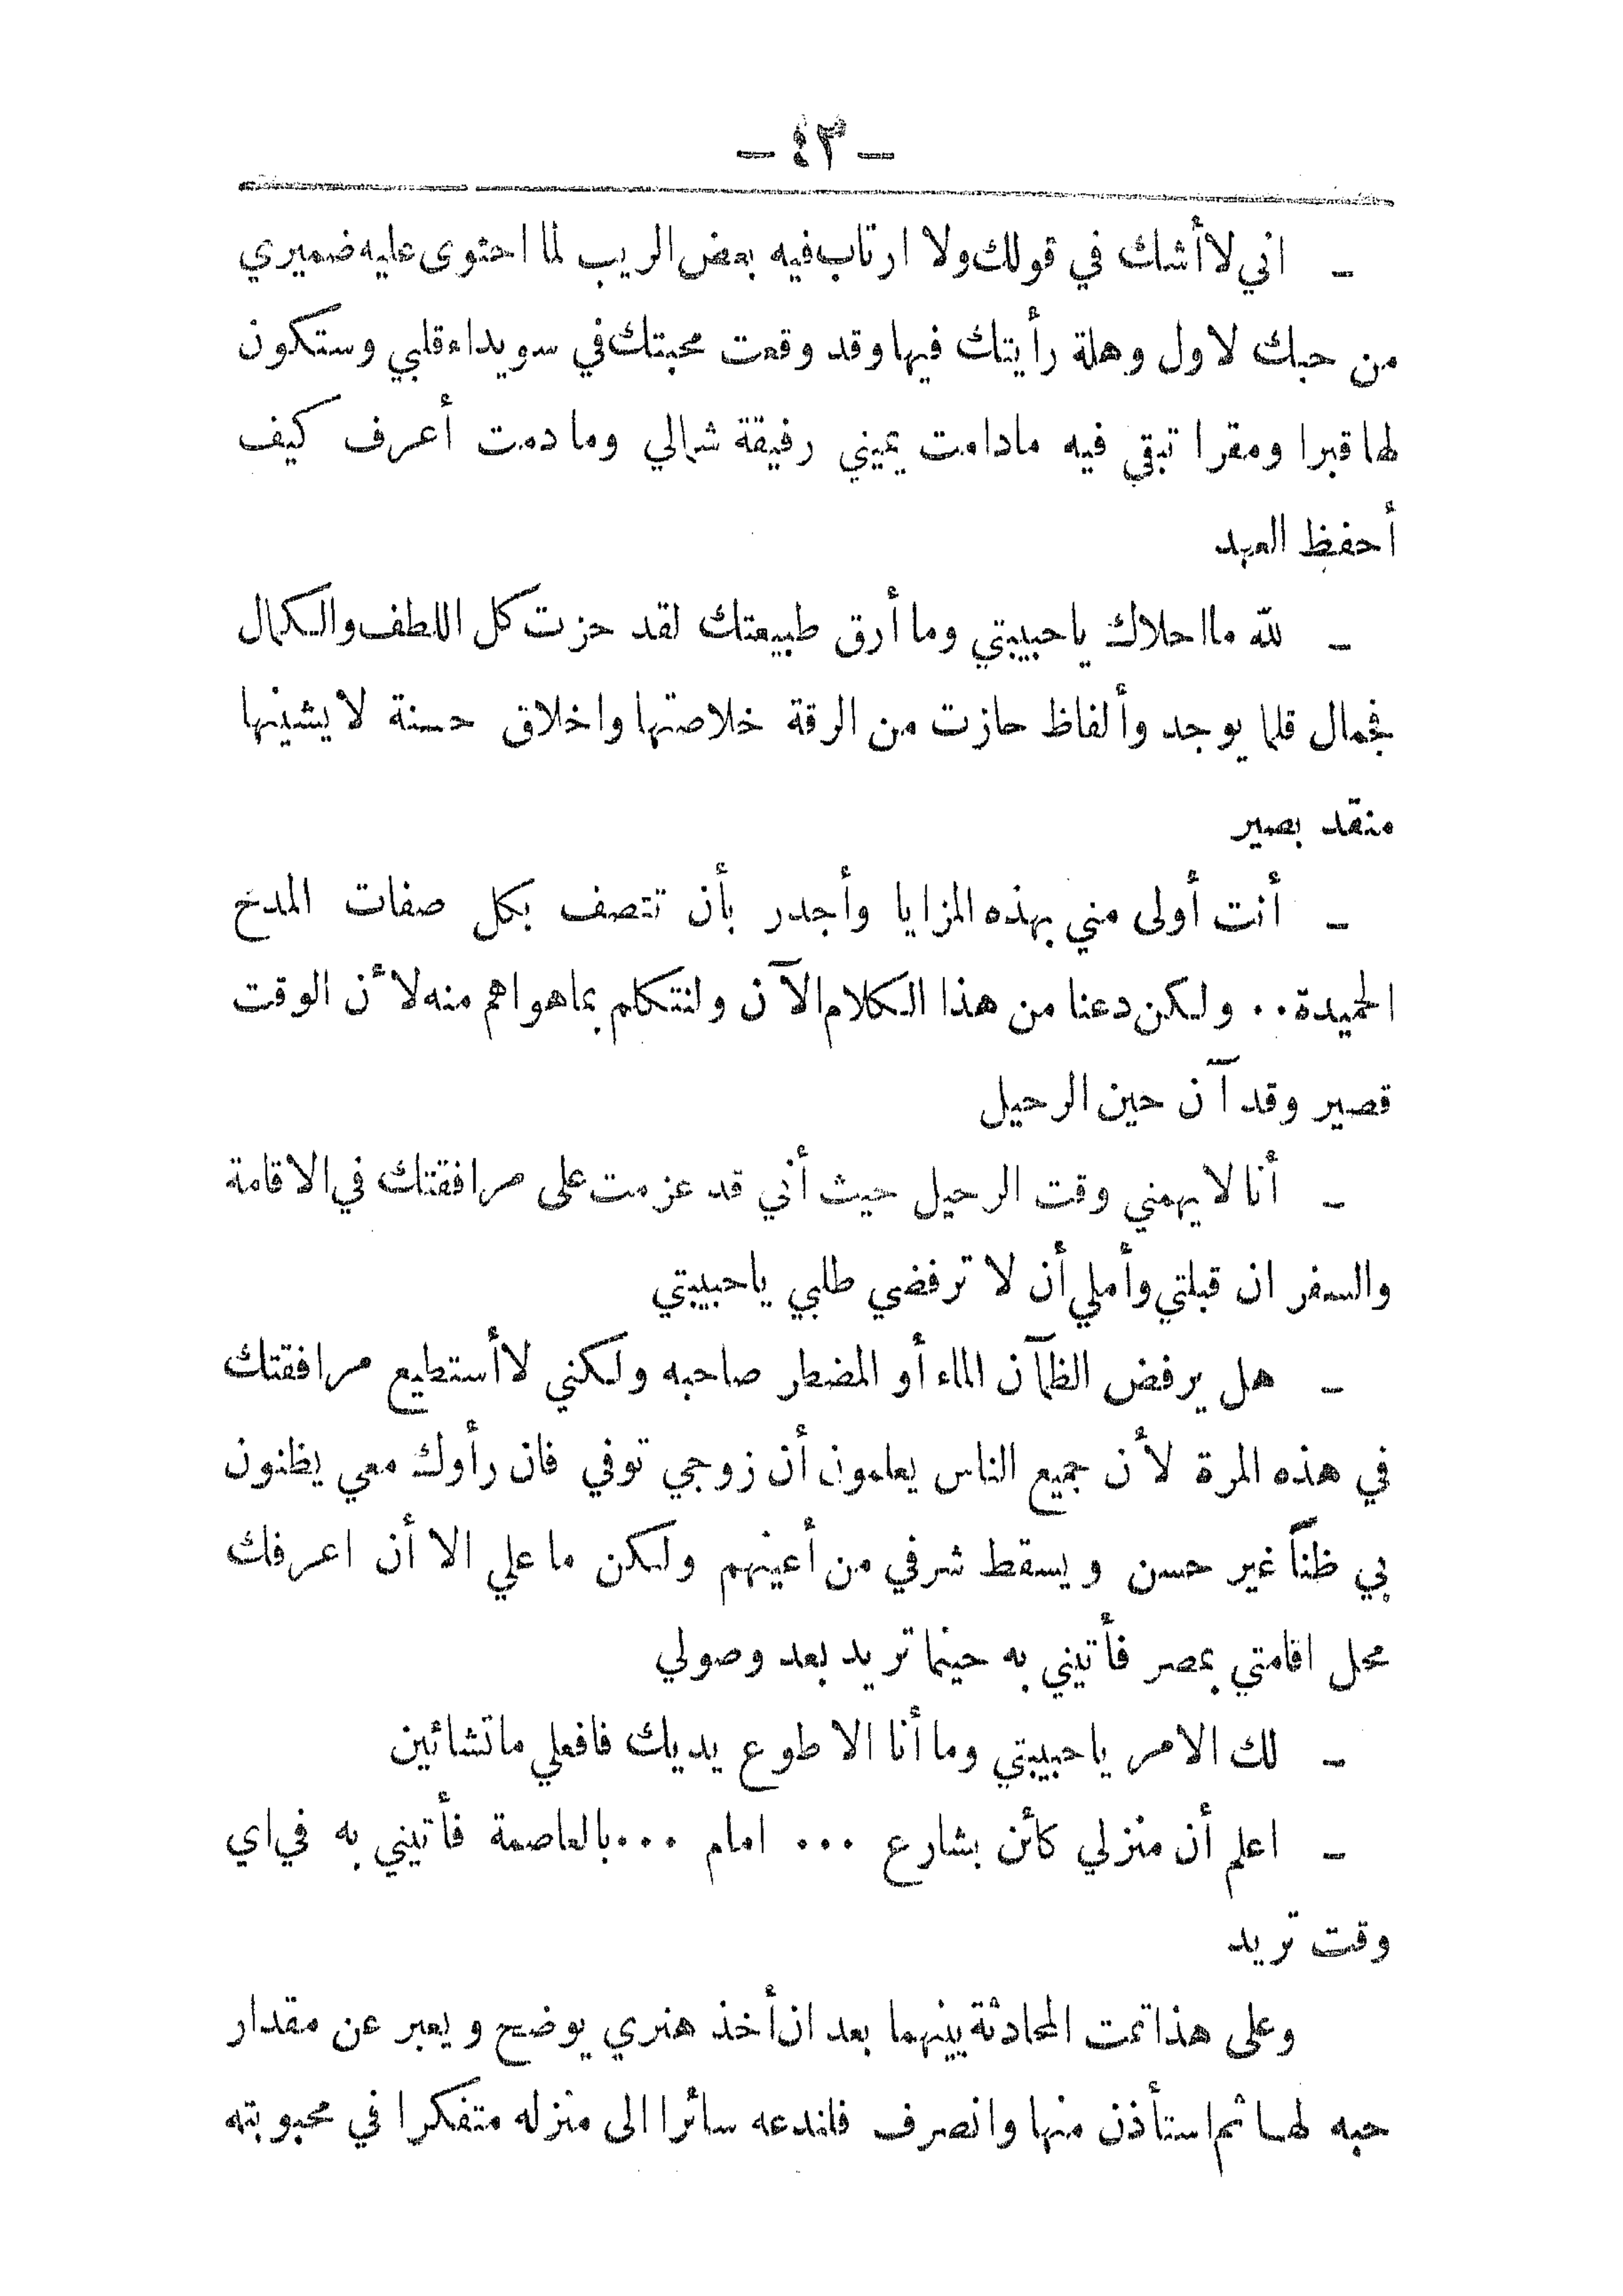 – ٤٣ –
– اني لا أشك في قولك ولا ارتاب فيه بعض الريب لما احتوى عليه ضميري
من حبك لاول وهلة رأيتك فيها وقد وقعت محبتك في سويداء قلبي وستكون
لها قبرا ومقرا تبقى فيه مادامت يميني رفيقة شمالي وما دمت أعرف كيف
أحفظ العهد
– لله ما احلاك يا حبيبتي وما أرق طبيعتك لقد حزت كل اللطف والكمال
فجمال قلما يوجد وألفاظ حازت من الرقة خلاصتها واخلاق حسنة لا يشينها
منقد بصير
– أنت أولى مني بهذه المزايا وأجدر بأن تتصف بكل صفات المدح
الحميدة .. ولكن دعنا من هذا الكلام الآن ولنتكلم بما هو اهم منه لأن الوقت
قصير وقد آن حين الرحيل
– أنا لا يهمني وقت الرحيل حيث أني قد عزمت على مرافقتك في الاقامة
والسفر ان قبلتي وأملي أن لا ترفضي طلبي يا حبيبتي
– هل يرفض الظمآن الماء أو المضطر صاحبه ولكني لا أستطيع مرافقتك
في هذه المرة لأن جميع الناس يعلمون أن زوجي توفي فان رأوك معي يظنون
بي ظناً غير حسن ويسقط شرفي من أعينهم ولكن ما علي الا أن اعرفك
محل اقامتي بمصر فأتيني به حينما تريد بعد وصولي
– لك الامر يا حبيبتي وما أنا الا طوع يديك فافعلي ما تشائين
– اعلم أن منزلي كأن بشارع ... امام ... بالعاصمة فأتيني به في اي
وقت تريد
وعلى هذا تمت المحادثة بينهما بعد ان أخذ هنري يوضح ويعبر عن مقدار
حبه لها ثم استأذن منها وانصرف فلندعه سائرا الى منزله متفكرا في محبوبته